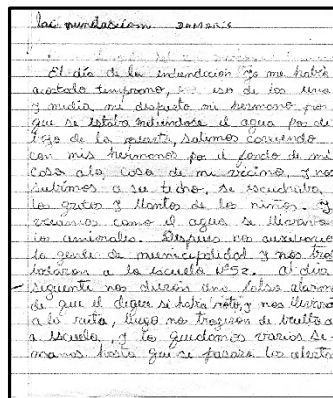 las inundacion DAMARIS
El día de la inundacion yo me había
acostado temprano, a eso de las una
y media me desperto mi hermano por
que se estaba metiendose el agua por de
bajo de la puerta, salimos corriendo
con mis hermanos por el fondo de mi
casa a la casa de mi vecino, y nos
subimos a su techo, se escuchaba
los gritos y llantos de los niños. y
veiamos como el agua se llevaba
los animales. Despues nos auxiliaron
la gente de municipalidad y nos tras
ladaron a la escuela Nº52. al día
siguiente nos dieron una falsa alarma
de que el dique si habia roto, y nos llevaron
a la ruta, luego nos trajeron de vuelta a
a escuela, y lo quedamos varios se
manas hasta que se pasara los alertas